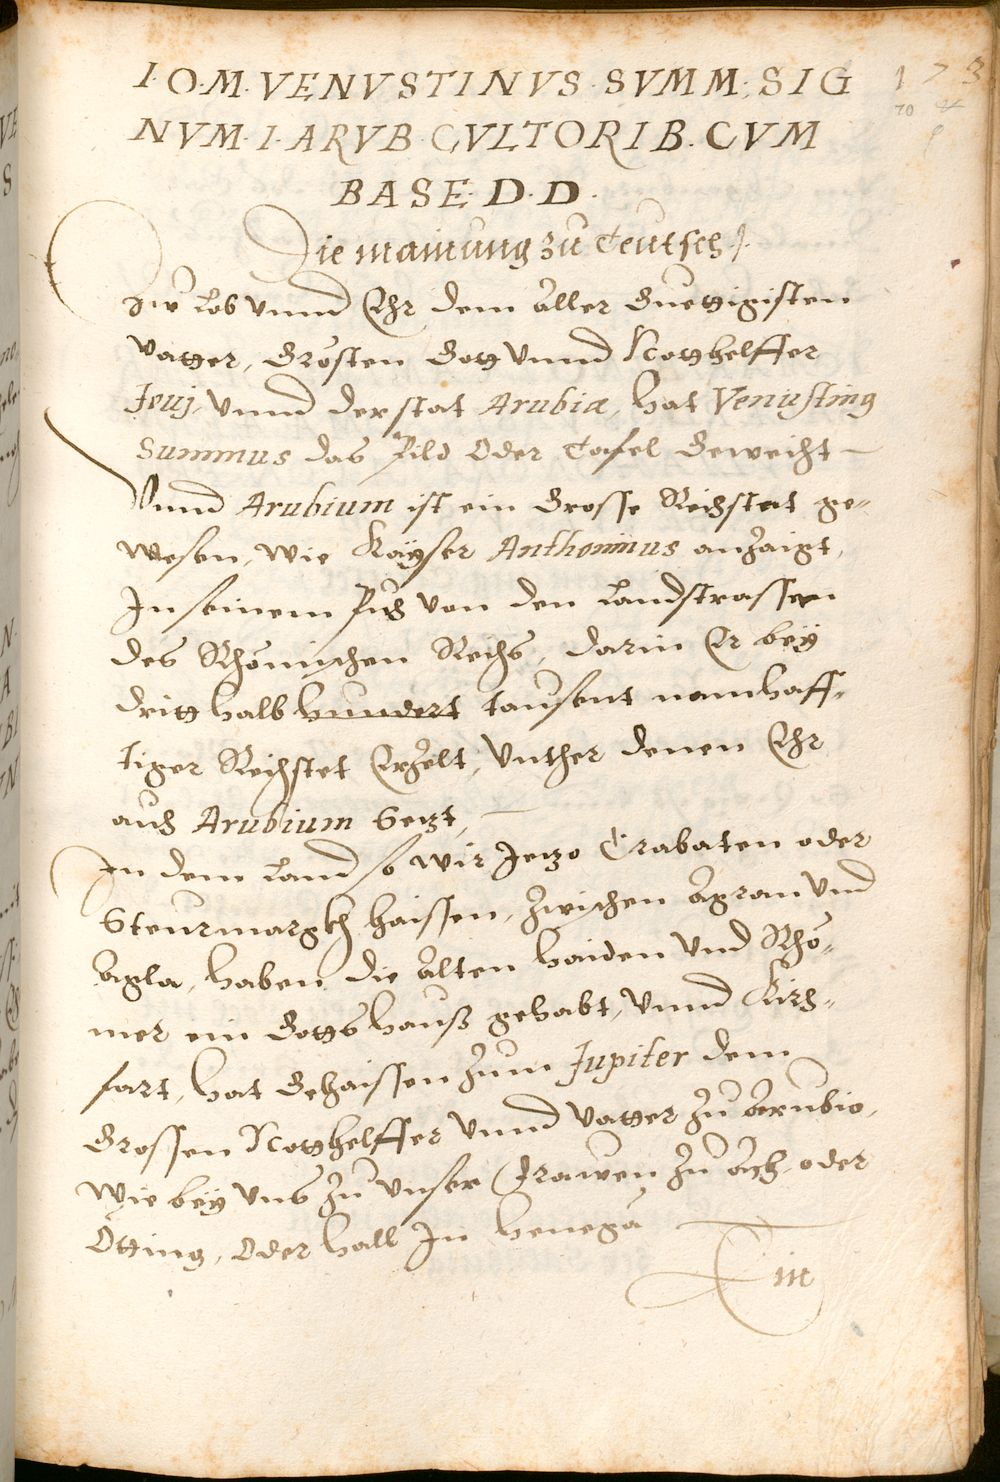 I·O·M·VENVSTINVS·SVMM·SIG
NVM·I·ARVB·CVLTORIB·CVM
BASE·D·D·
Die mainung zu Teutsch.
Zw Lob vnnd Ehr dem aller Guettigisten
vatter, Grösten Gott vnnd Notthelffer
Jouj, vnnd der stat Arubia, hat Venusting
Summus das Pild Oder Tafel Geweicht
Vnnd Arubium ist ein Grosse Reichstat ge-
wesen, Wie Kayser Anthoninus anzaigt,
In seinem Puch von den Landstrassen
des Rhömischen Reichs, darin Er bey
dritthalb hundert tausent namhaff-
tiger Reichstet Erzelt, Vnther denen Ehr
auch Arubium Setzt,
In dem Land so wir Jetzo Crabaten oder
Steurmargkh haissen, zwischen Agran vnd
Agla, haben die alten haiden vnd Rhö-
mer ein Gottshauß gehabt, vnnd Kirch-
fart, hat Gehaissen zum Jupiter dem
Grossen Notthelffer vnnd vatter zu Arubio,
Wie bey vns zu vnser Frawen zu Ach oder
Otting, Oder Hall In henega
Ein